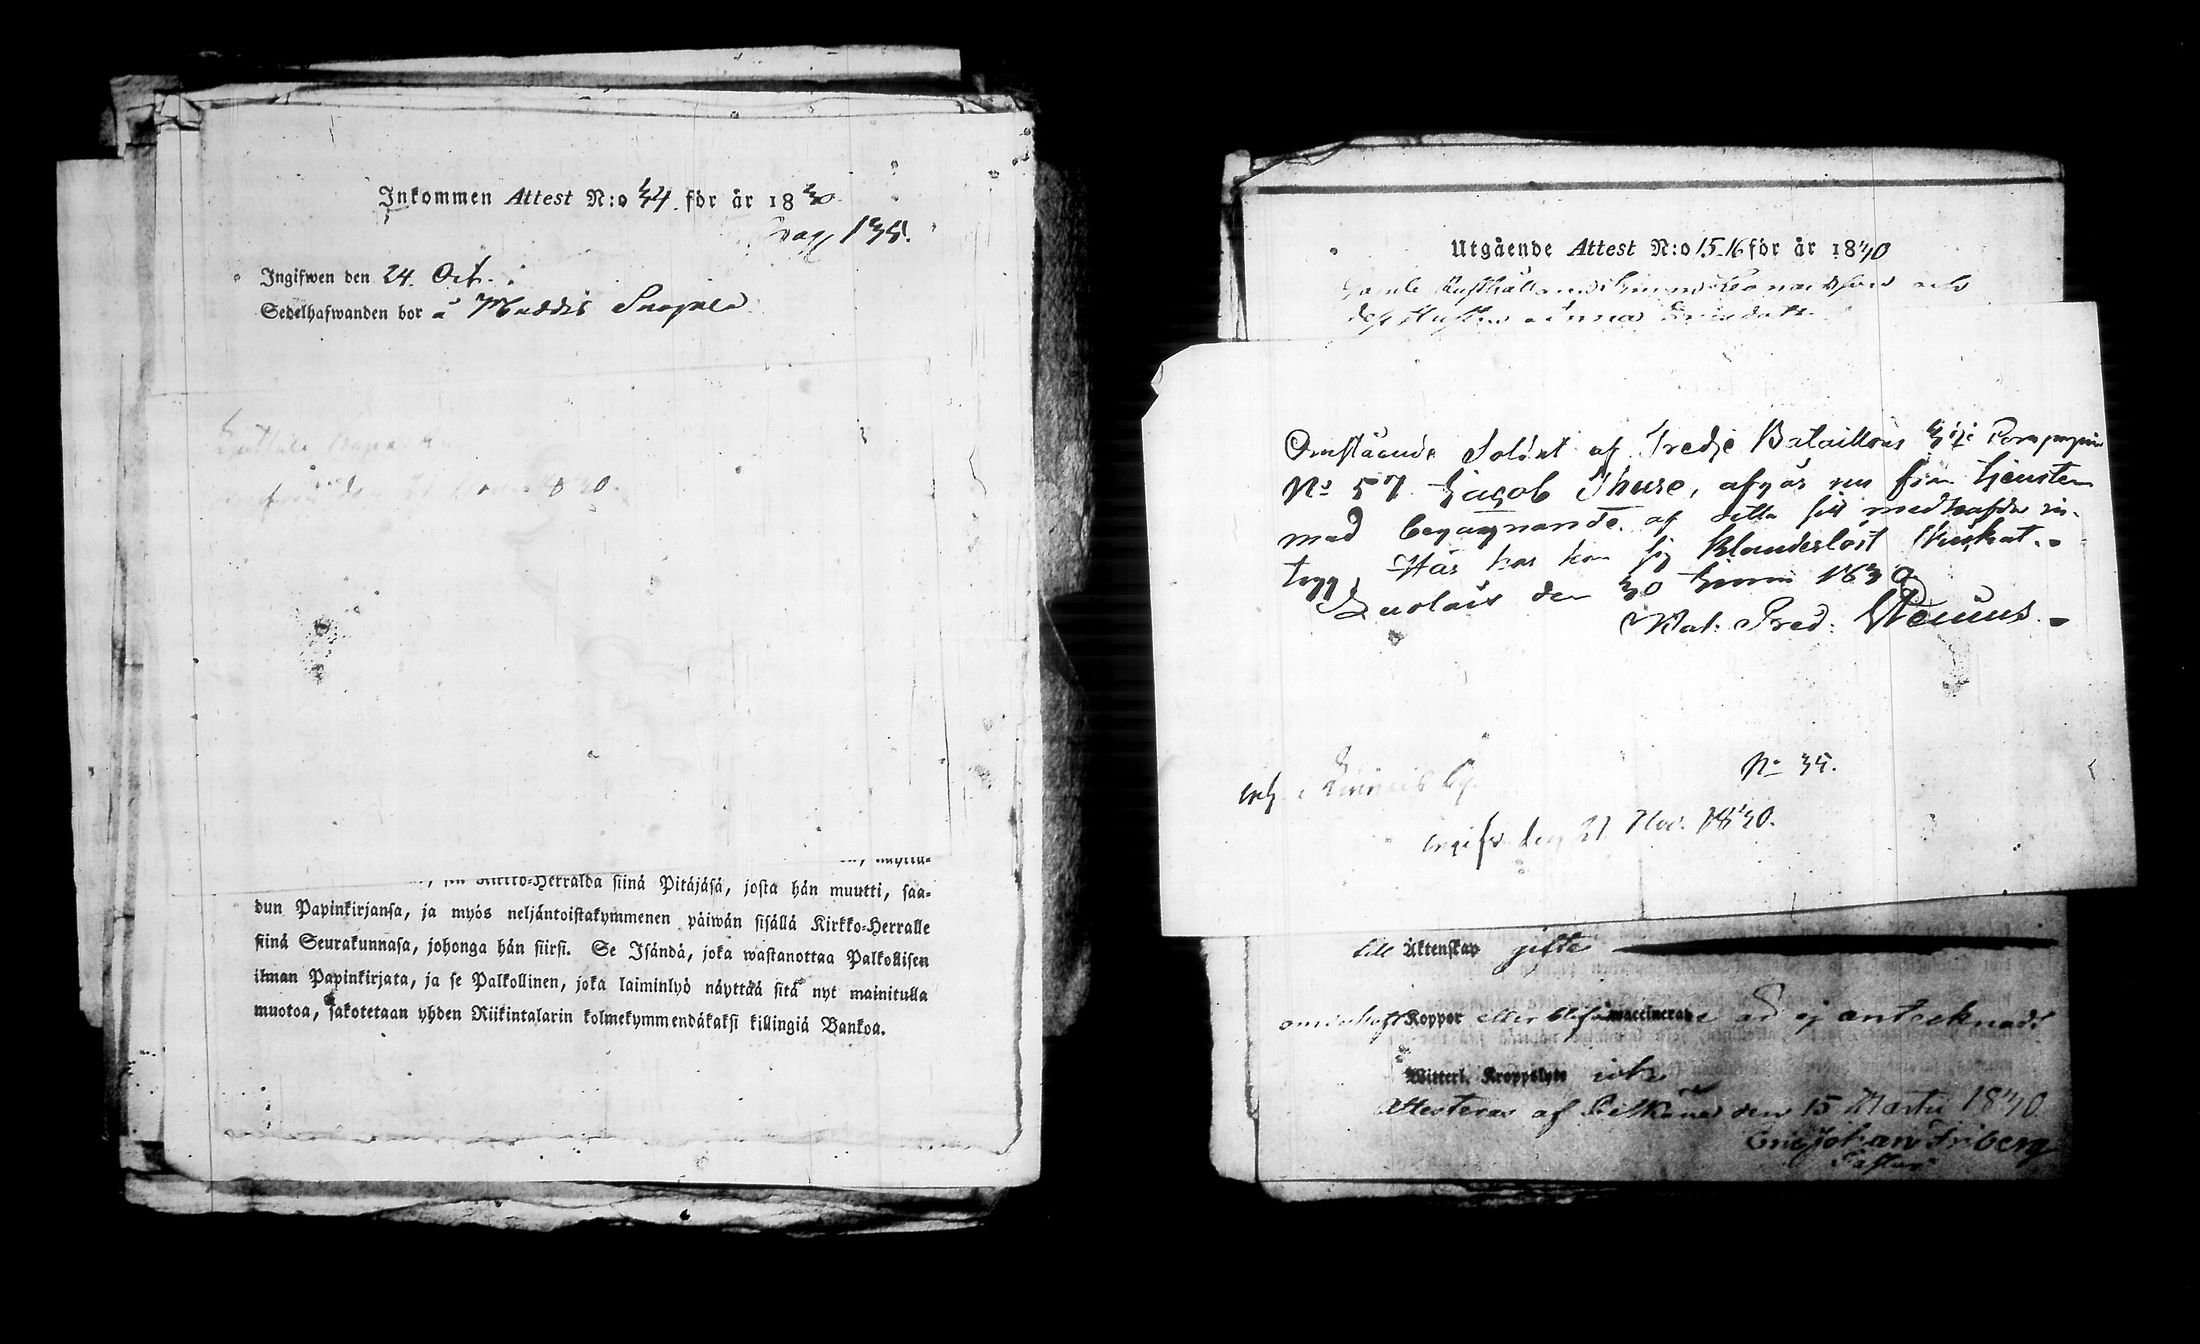 Inkommen Attest N:o 34 för år 1830
pag 135.
Ingifwen den 24. Oct.
Sedelhafwanden bor å
den 21 Nov. 1830.
Kirkko-Herralda siinä Pitäjäsä, josta hän muutti, saa-
dun Papinkirjansa, ja myös neljäntoistakymmenen päiwän sisällä Kirkko-Herralle
siinä Seurakunnasa, johonga hän siirsi. Se Isändä, joka wastanottaa Palkollisen
ilman Papinkirjata, ja se Palkollinen, joka laiminlyö näyttää sitä nyt mainitulla
muotoa, sakotetaan yhden Riikintalarin kolmekymmendäkaksi killingiä Bankoa.
Utgående Attest N:o 15.16 för år 1830
Gamle och
dess Hustru Anna
Omstående Soldat af Tredje Bataillons Compagnie
No 57 Jacob Thure, afgår nu från tjensten
med begagnande af detta sitt medhafda in-
tyg, Här har han sig klanderlöst
den 30 Junii 1830
Bat: Pred: Wenius.
No 35.
ingifv den 21 Nov. 1830.
till Äktenskap gifte
Koppor eller blifvit vaccinerade är ej antecknadt
Witterl. Kroppslyte icke
Attesteras af Pelkäne den 15 Martii 1830
Eric Johan Friberg
Pastor